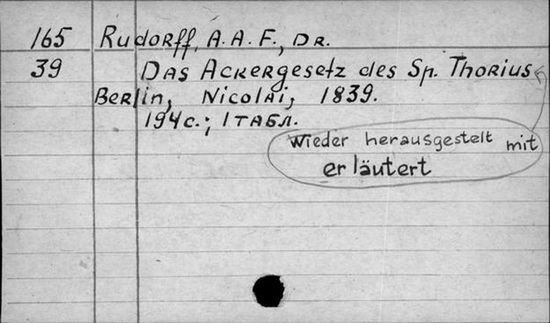 165 Rudorff, A. A. F., Dr.
39 Das Ackergesetz des Sp. Thorius
Berlin, Nicolai, 1839.
194 с.; 1 табл.
Wieder herausgestelt mit
erläutert